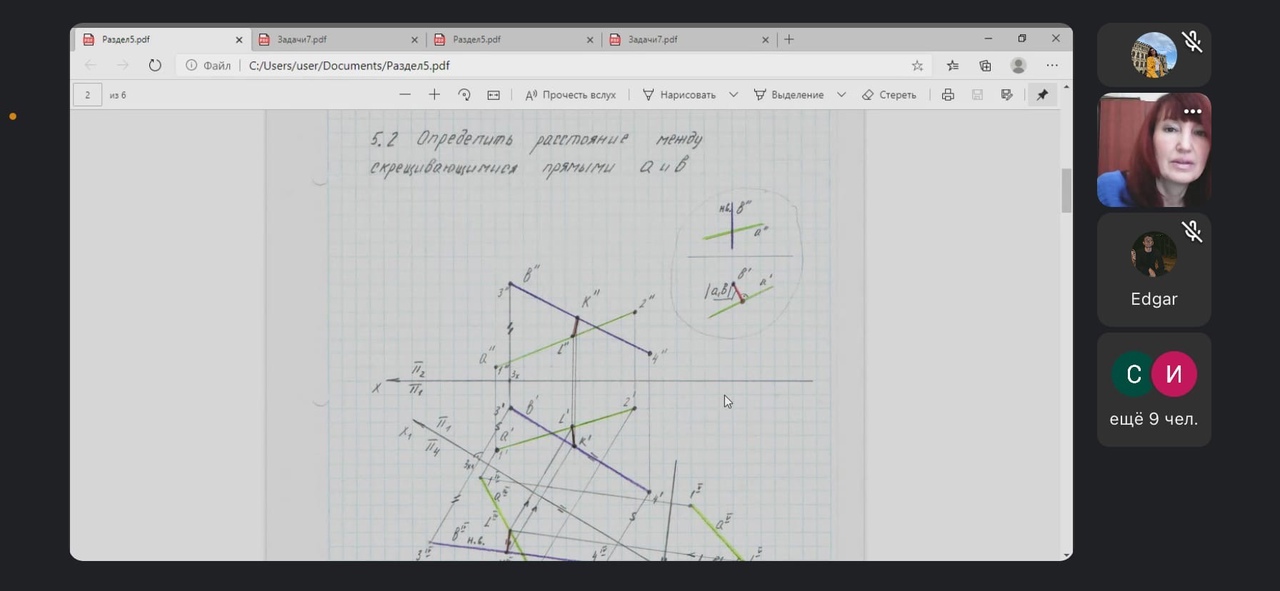 Раздел5.pdf
Задачи7.pdf
Раздел5.pdf
Задачи7.pdf
Файл
C:/Users/user/Documents/Раздел5.pdf
2
из 6
Прочесть вслух
Нарисовать
Выделение
Стереть
5.2 Определить расстояние между
скрещивающимися прямыми а и в
н.в. в"
а"
в'
а'
|а,в|
3" в"
К"
2"
L"
4"
а"
1"
X
П2
П1
3' в'
2'
L'
а'
1'
К'
4'
X1
П1
П4
н.в.
Edgar
С
И
ещё 9 чел.